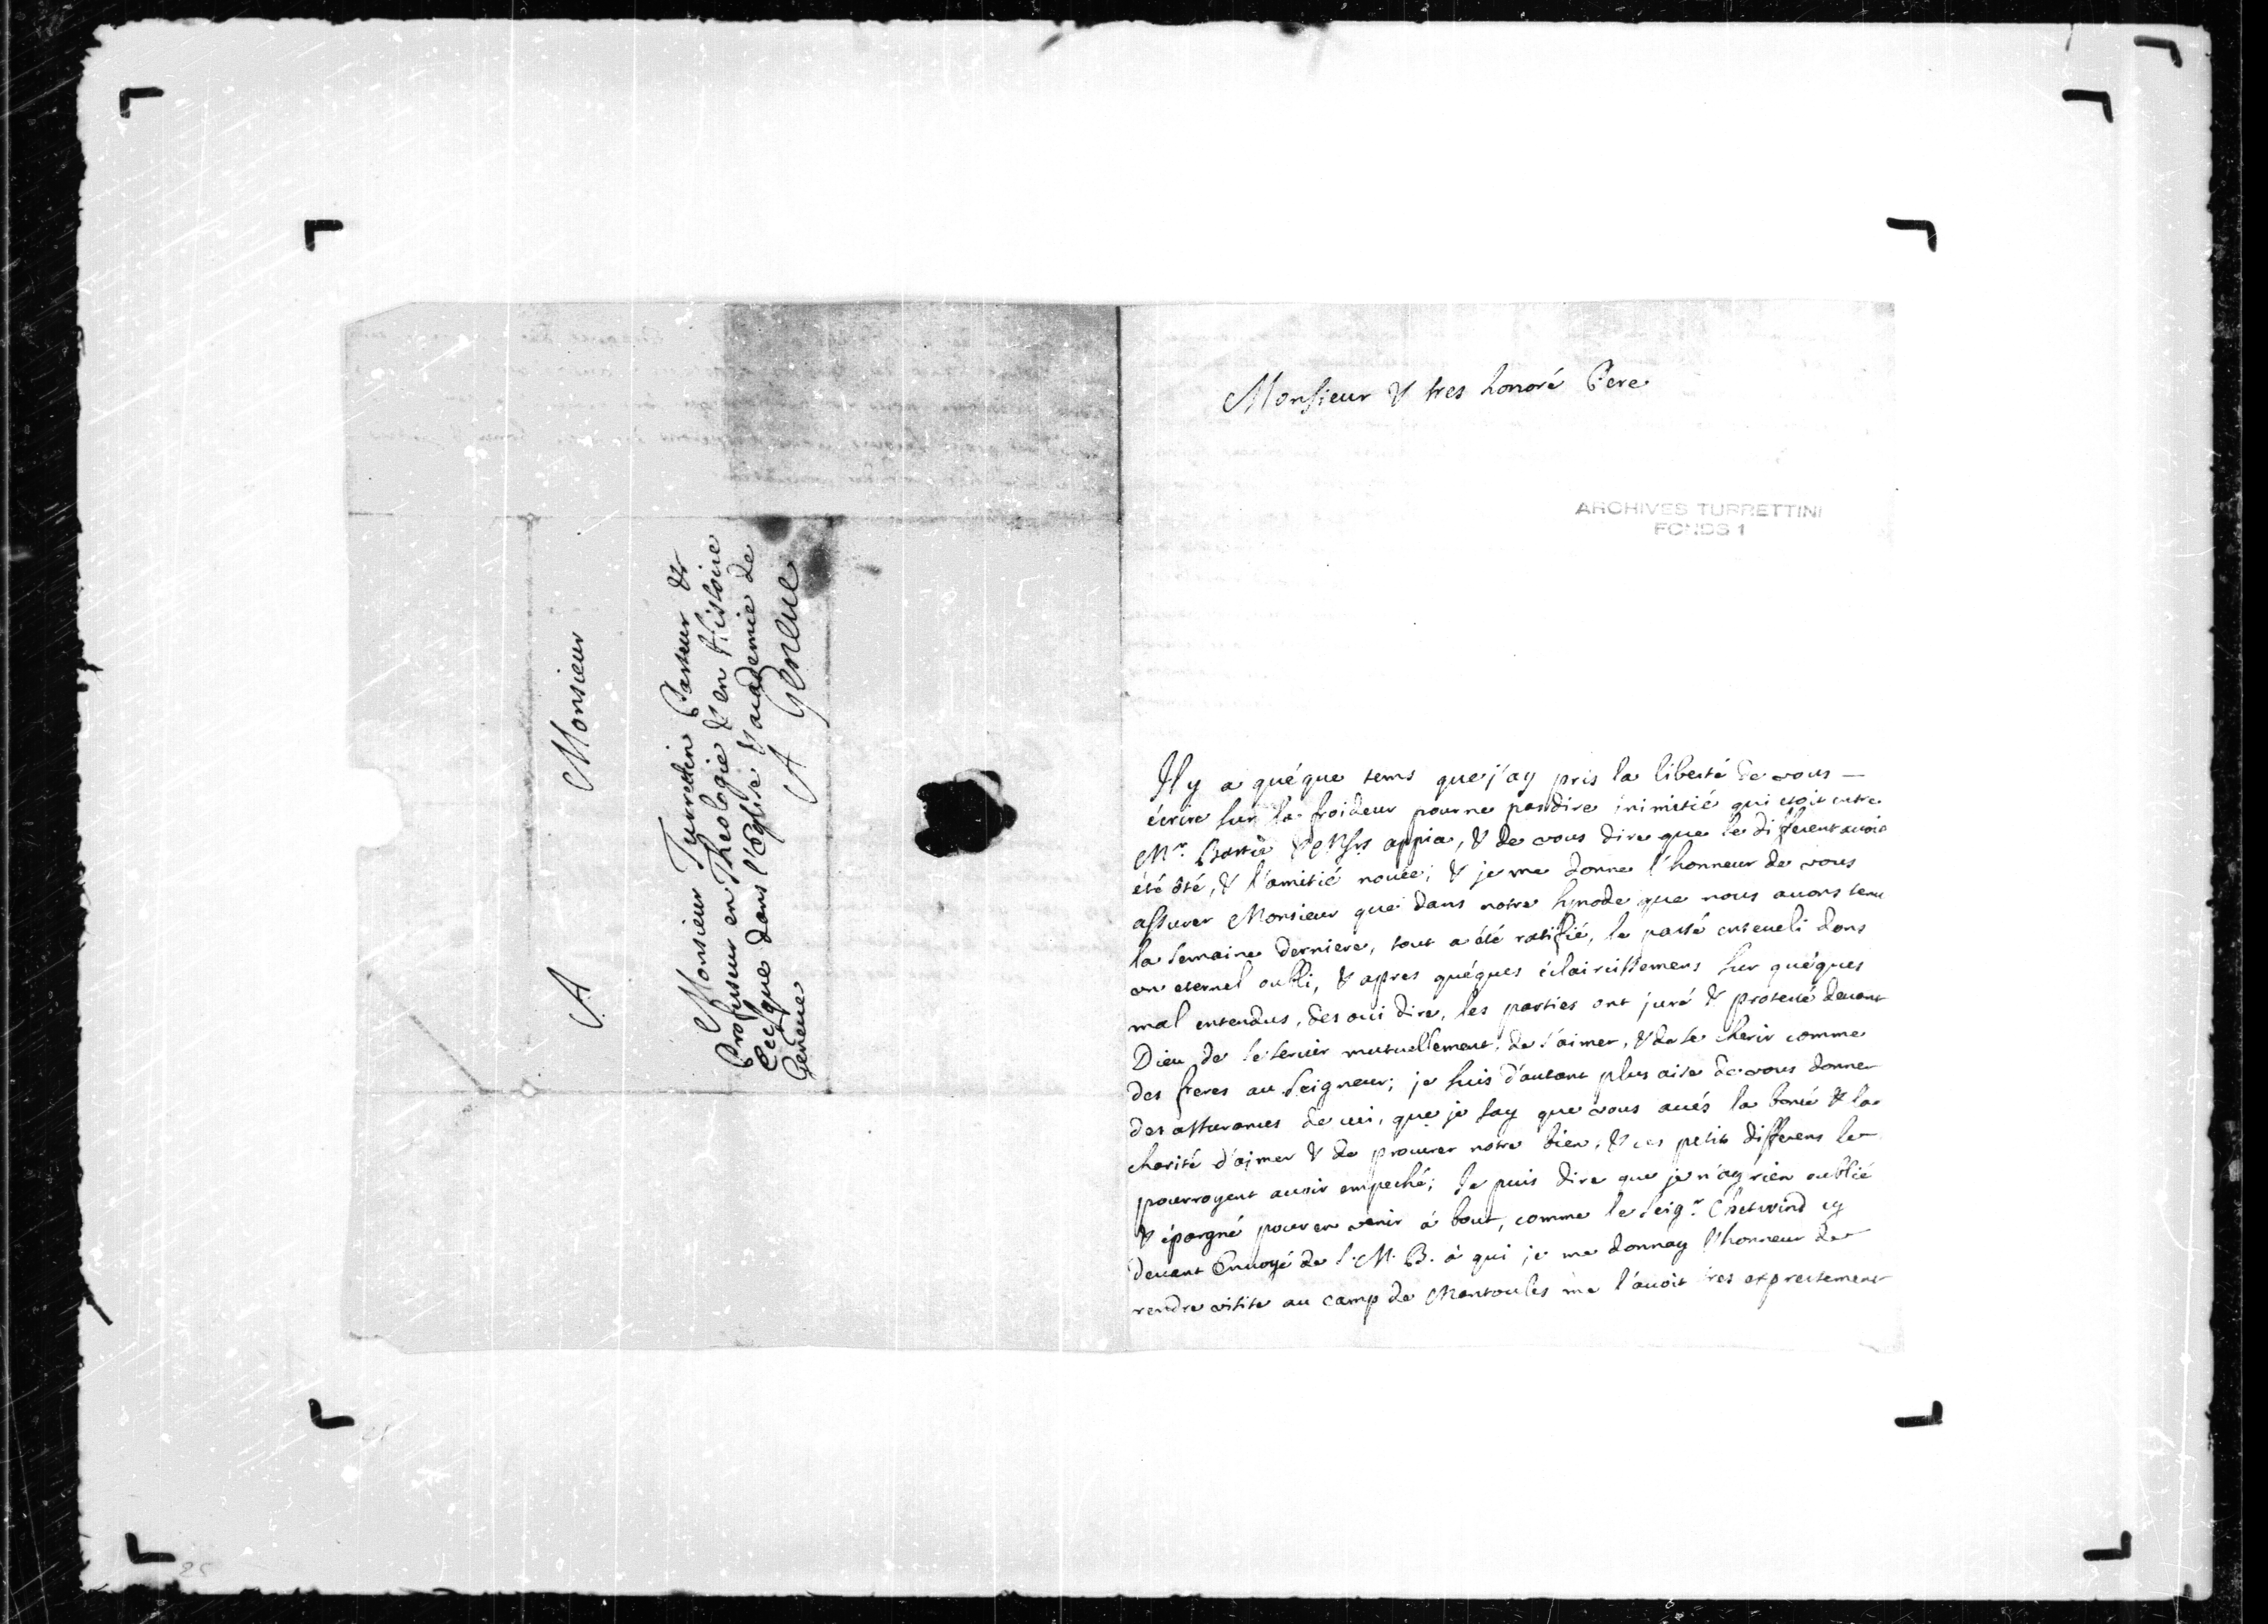 A Monsieur
Monsieur Turrettin Pasteur &
Professeur en Theologie & en Histoire
Eccl'que dans l'Eglise & academie de
Geneve
A Geneue
Monsieur & tres honoré Pere
ARCHIVES TURRETTINI
FONDS 1
Il y a quéque tems que j'ay pris la liberté de vous —
écrire sur la froideur pour ne pas dire inimitié qui etoit entre
Mr. Bastie & Mrs appia, & de vous dire que le different avoit
été ôté, & l'amitié nouée; & je me donne l'honneur de vous
assurer Monsieur que dans notre synode que nous avons tenu
la semaine derniere, tout a été ratifié, le passé enseveli dans
un eternel oubli, & apres quéques éclaircissemens sur quéques
mal entendus, des oui dire, les parties ont juré & protesté devant
Dieu de se servir mutuellement, de s'aimer, & de se cherir comme
des freres au Seigneur; je suis d'autant plus aise de vous donner
des assurances de ceci, que je say que vous avés la bonté & la
charité d'aimer & de procurer notre bien, & ces petits differens le
pourroyent avoir empeché; Je puis dire que je n'ay rien oublié
& épargné pour en venir à bout, comme le Seigr. Chetwind cy
devant Envoyé de S. M. B. à qui je me donnay l'honneur de
rendre visite au camp de Mentoules me l'avoit tres expressement